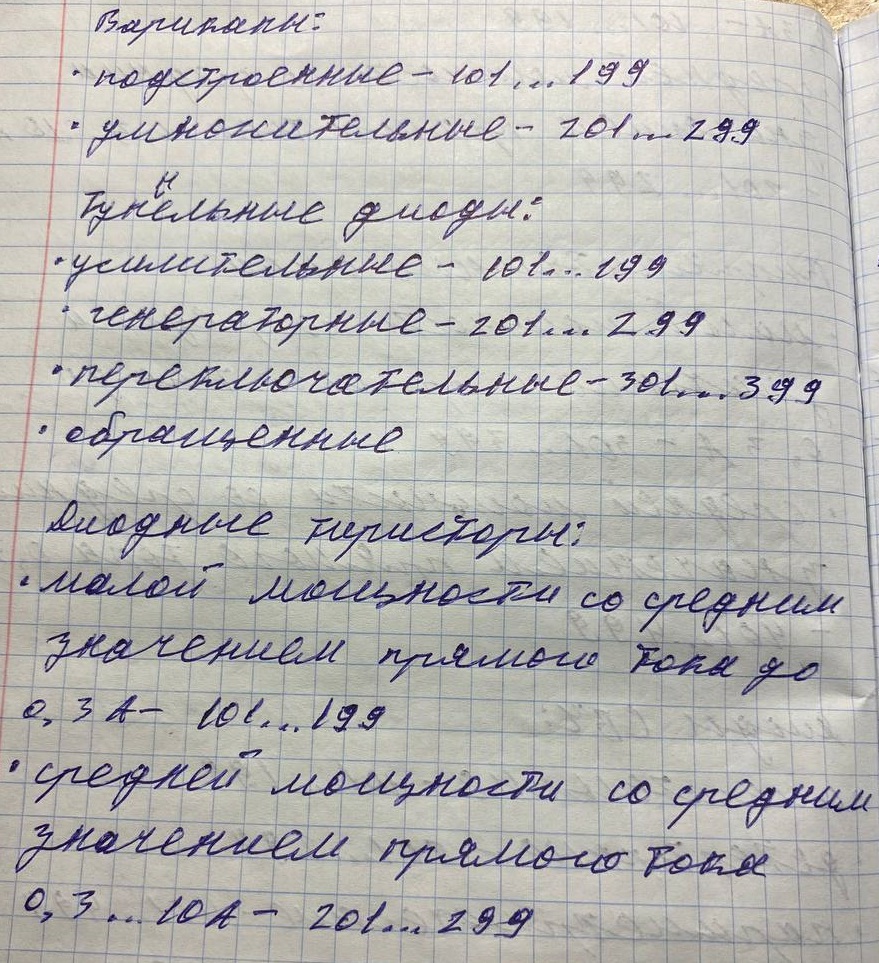 Варикапы:
· подстроенные – 101...199
· умножительные – 201...299
Туннельные диоды:
· усилительные – 101...199
· генераторные – 201...299
· переключательные – 301...399
· обращенные
Диодные тиристоры:
· малой мощности со средним
значением прямого тока до
0,3 А – 101...199
· средней мощности со средним
значением прямого тока
0,3...10А – 201...299